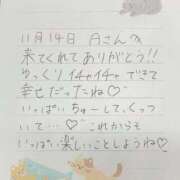 11月14日 Aさんへ
来てくれてありがとう!!
ゆっくりイチャイチャできて
幸せだったね♡
いっぱいちゅーして、くっつ
いて…♡ これからも
いっぱい楽しいことしようね♡